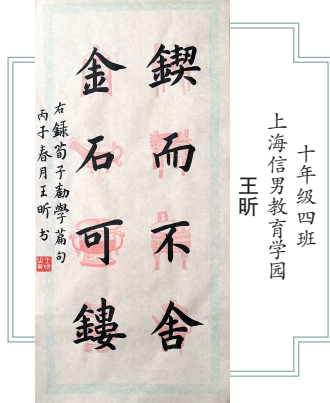 十年级四班
上海信男教育学园
王昕
鍥而不舍
金石可鏤
右録荀子勸學篇句
丙子春月王昕书